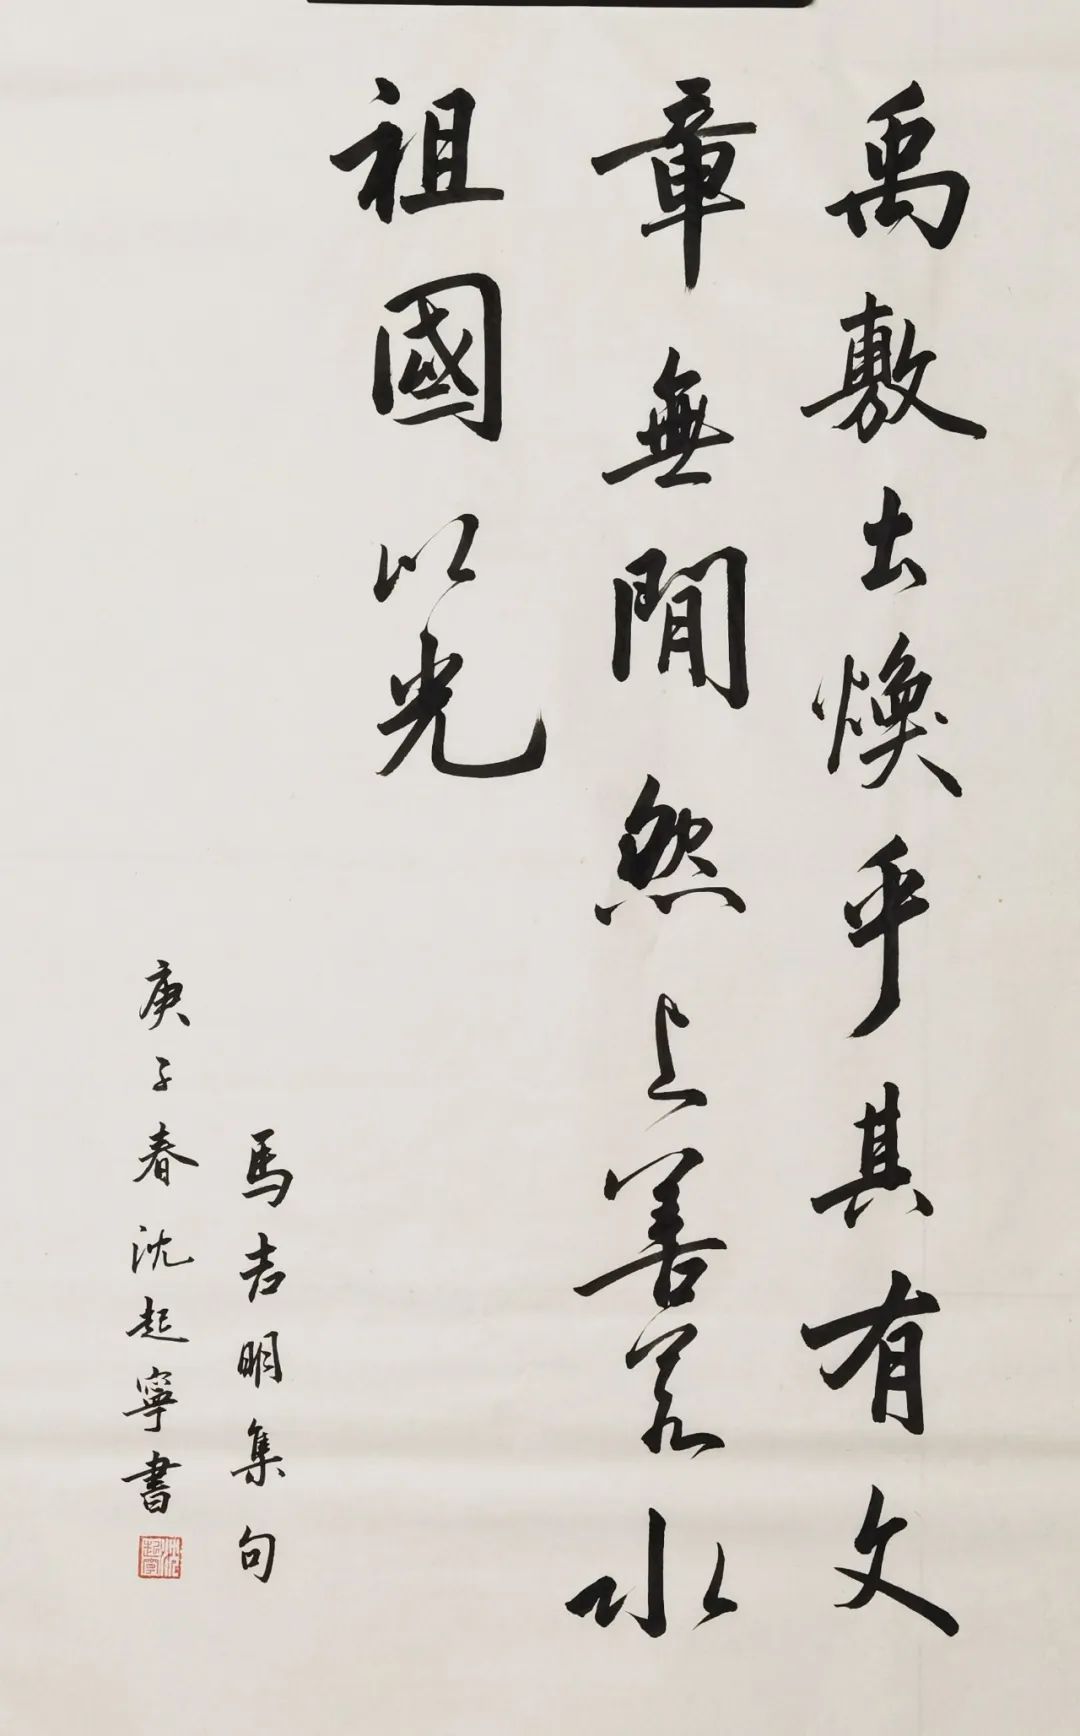 禹敷土煥乎其有文
章無閒然上善若水
祖國以光
馬吉明集句
庚子春沈起寧書
沈起寧